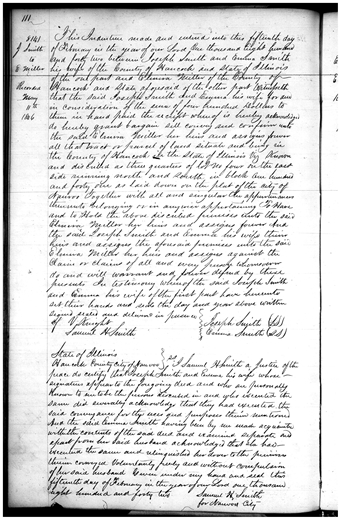 111
8141
J Smith
to
E Miller
Recorded
11th
1846
This Indenture made and entered into this fifteenth day
of February in the year of our Lord one thousand eight hundred
and forty two between Joseph Smith and Emma Smith
his wife of the County of Hancock and State of Illinois
of the one part and Elmira Miller of the County of
Hancock and State aforesaid of the other part Witnesseth
that the said Joseph Smith and Emma his wife for and
in consideration of the sum of four hundred Dollars to
them in hand paid the receipt whereof is hereby acknowledged
do hereby grant bargain sell convey and confirm unto
the said Elmira Miller her heirs and assigns forever
all that tract or parcel of land situate and lying in
the County of Hancock in the State of Illinois Known
and distinguished as three quarters of Lot No four on the east
side running north and South in block one hundred
and forty one as laid down on the plat of the city of
Nauvoo Together with all and singular the appurtenances
thereunto belonging or in anywise appertaining To Have
and to Hold the above described premises unto the said
Elmira Miller her heirs and assigns forever And
the said Joseph Smith and Emma his wife their
heirs and assigns the aforesaid premises unto the said
Elmira Miller her heirs and assigns against the
claim or claims of all and every person whomsoever
do and will warrant and forever defend by these
presents In testimony whereof the said Joseph Smith
and Emma his wife of the first part have hereunto
set their hands and seals the day and year above written
signed sealed and delivered in presence
of Knight Joseph Smith (LS)
Samuel H Smith Emma Smith (LS)
State of Illinois
Hancock County City of Nauvoo ss I Samuel H Smith a Justice of the
peace do certify that Joseph Smith and Emma his wife whose
signatures appears to the foregoing deed and who are personally
Known to me to be the persons described in and who executed the
same did severally acknowledge that they had executed the
said conveyance for the uses and purposes therein mentioned
And the said Emma Smith having been by me made acquainted
with the contents of the said deed and examined separate and
apart from her said husband acknowledged that she had
executed the same and relinquished her dower to the premises
therein conveyed Voluntarily freely and without compulsion
of her said husband Given under my hand and seal this
fifteenth day of February in the year of our Lord one thousand
eight hundred and forty two Samuel H. Smith
for Nauvoo City